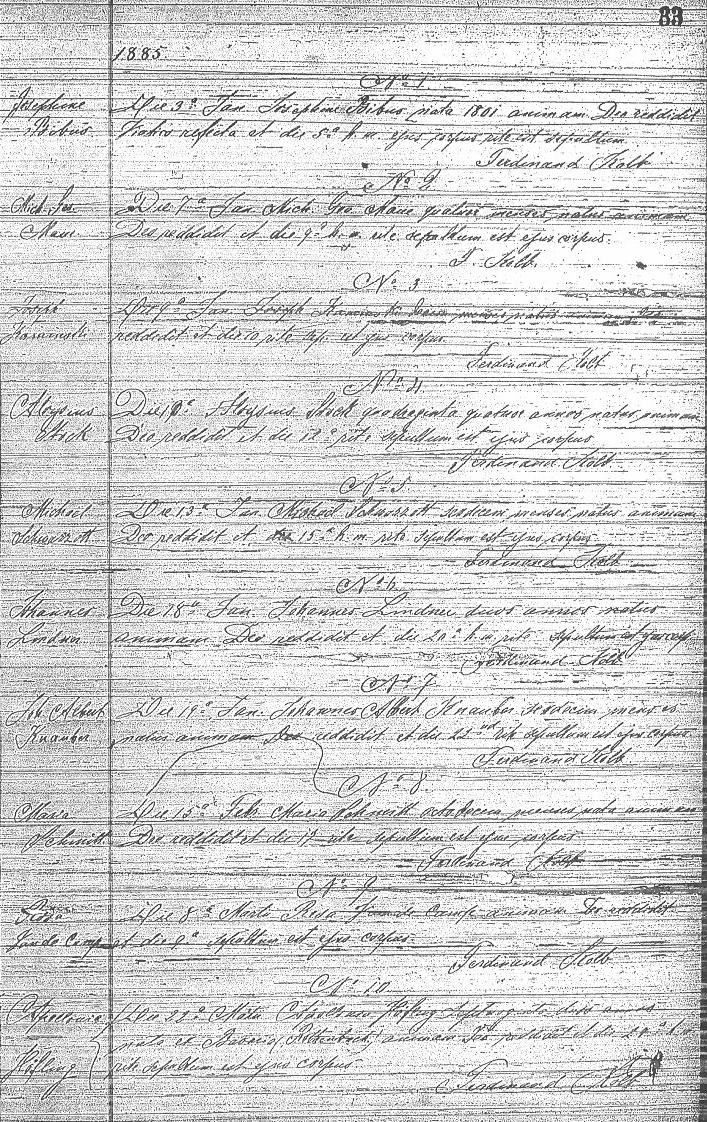 83
1885
No 1
Josephine Die 3a Jan. Josephine Bibus nata 1801 animam Deo reddidit
Bibus refecta et die 5a h. m. ejus corpus rite est sepultum
Ferdinand Kolb
No 2
Mich. Maue Die 7a Jan. Mich. Geo. Maue quatuor menses natus animam
Deo reddidit et die 9a h. m. rite sepultum est ejus corpus.
F. Kolb
No 3
Joseph Die 9a Jan. Joseph menses natus animam Deo
Kaminski reddidit et die 10 rite sep. est ejus corpus
Ferdinand Kolb
No 4
Aloysius Die 10a Aloysius Stock quatuor annos natus animam
Stock Deo reddidit et die 12a rite sepultum est ejus corpus
Ferdinand Kolb
No 5
Michael Die 13a Jan. Michael Schwarzott menses natus animam
Schwarzott Deo reddidit et die 15a h. m. rite sepultum est ejus corpus
Ferdinand Kolb
No 6
Johannes Die 18a Jan. Johannes Lindner duos annos natus
Lindner animam Deo reddidit et die 20a h. m. rite sepultum est ejus corp
Ferdinand Kolb
No 7
Joh. Albert Die 19a Jan. Johannes Albert Knauber menses
Knauber natus animam Deo reddidit et die 22nd rite sepultum est ejus corpus
Ferdinand Kolb
No 8
Maria Die 15a Feb. Maria Schmitt octodecim menses nata animam
Schmitt Deo reddidit et die 17 rite sepultum est ejus corpus
Ferdinand Kolb
No 9
Rosa Die 8a Martii Rosa Van de Camp animam Deo reddidit
Van de Camp et die 9a sepultum est ejus corpus.
Ferdinand Kolb
No 10
Apollonia Die 22a Apollonia Höfling duos annos
nata ex Bavaria animam Deo reddidit et die h. m.
Höfling rite sepultum est ejus corpus
Ferdinand Kolb